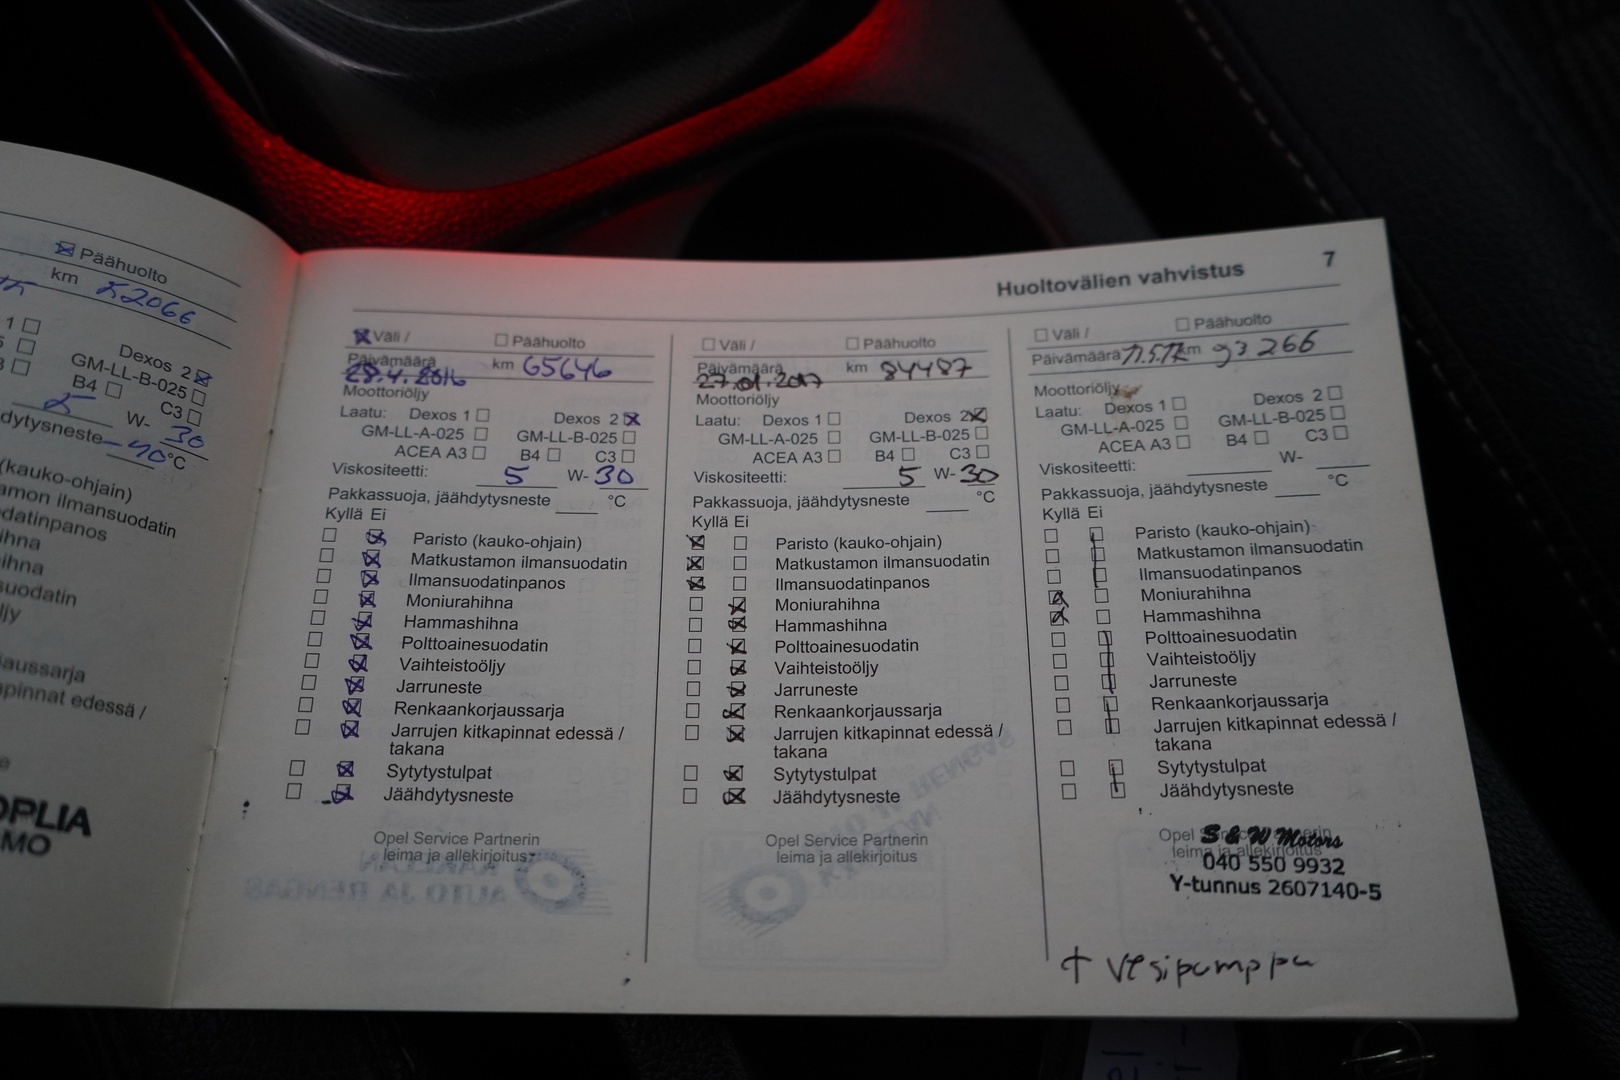 Päähuolto
km 52066
1
Dexos 2
GM-LL-B-025
B4 C3
W- 30
dytysneste -40 °C
(kauko-ohjain)
ilmansuodatin
ihna
ihna
suodatin
aussarja
pinnat edessä /
OPLIA
MO
Huoltovälien vahvistus 7
Väli / Päähuolto
Päivämäärä 28.4.2016 km 65646
Moottoriöljy
Laatu: Dexos 1 Dexos 2
GM-LL-A-025 GM-LL-B-025
ACEA A3 B4 C3
Viskositeetti: 5 W- 30
Pakkassuoja, jäähdytysneste °C
Kyllä Ei
Paristo (kauko-ohjain)
Matkustamon ilmansuodatin
Ilmansuodatinpanos
Moniurahihna
Hammashihna
Polttoainesuodatin
Vaihteistoöljy
Jarruneste
Renkaankorjaussarja
Jarrujen kitkapinnat edessä /
takana
Sytytystulpat
Jäähdytysneste
Opel Service Partnerin
leima ja allekirjoitus
Väli / Päähuolto
Päivämäärä 27.01.2017 km 84487
Moottoriöljy
Laatu: Dexos 1 Dexos 2
GM-LL-A-025 GM-LL-B-025
ACEA A3 B4 C3
Viskositeetti: 5 W- 30
Pakkassuoja, jäähdytysneste °C
Kyllä Ei
Paristo (kauko-ohjain)
Matkustamon ilmansuodatin
Ilmansuodatinpanos
Moniurahihna
Hammashihna
Polttoainesuodatin
Vaihteistoöljy
Jarruneste
Renkaankorjaussarja
Jarrujen kitkapinnat edessä /
takana
Sytytystulpat
Jäähdytysneste
Opel Service Partnerin
leima ja allekirjoitus
Väli / Päähuolto
Päivämäärä 11.5.17 km 93 266
Moottoriöljy
Laatu: Dexos 1 Dexos 2
GM-LL-A-025 GM-LL-B-025
ACEA A3 B4 C3
Viskositeetti: W-
Pakkassuoja, jäähdytysneste °C
Kyllä Ei
Paristo (kauko-ohjain)
Matkustamon ilmansuodatin
Ilmansuodatinpanos
Moniurahihna
Hammashihna
Polttoainesuodatin
Vaihteistoöljy
Jarruneste
Renkaankorjaussarja
Jarrujen kitkapinnat edessä /
takana
Sytytystulpat
Jäähdytysneste
Opel Service Partnerin
leima ja allekirjoitus
S & W Motors
040 550 9932
Y-tunnus 2607140-5
+ vesipumppu